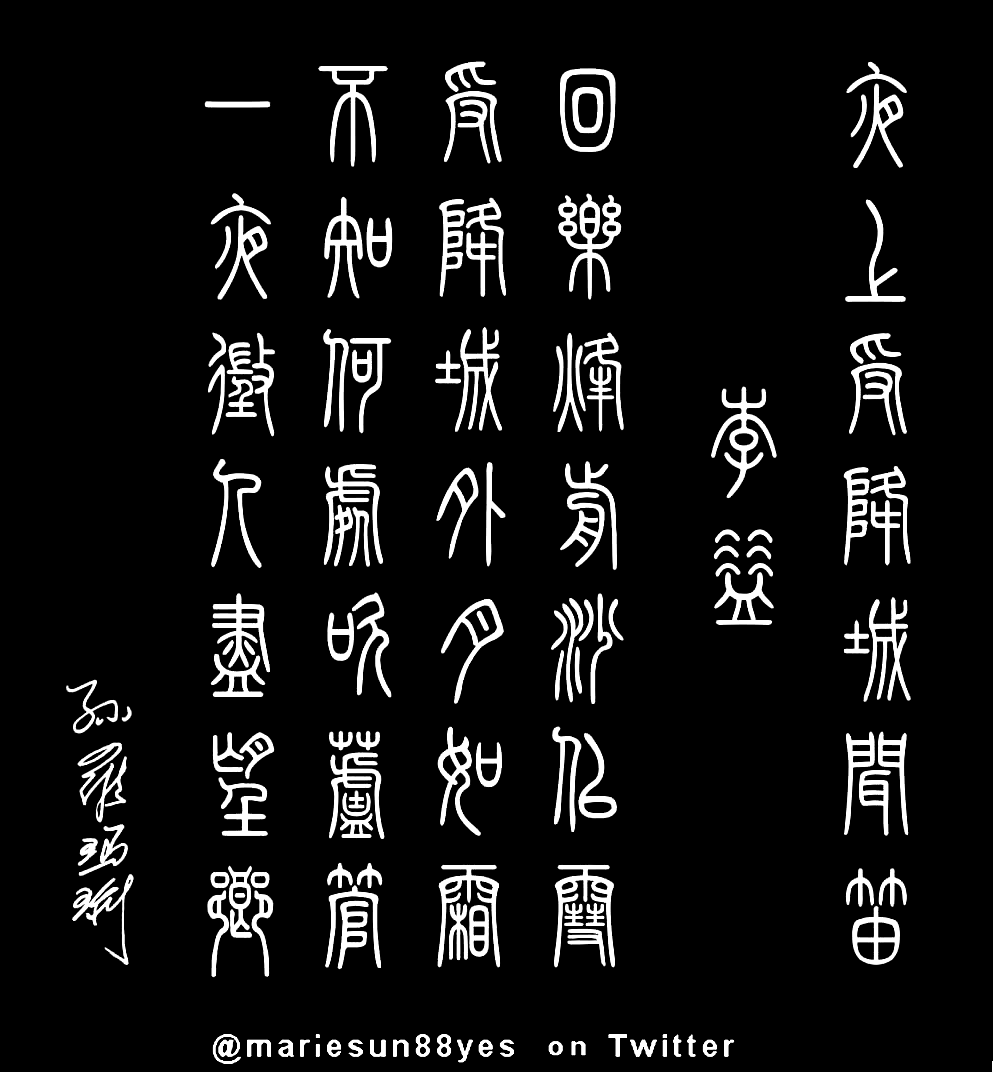 夜上受降城聞笛
李益
回樂烽前沙似雪
受降城外月如霜
不知何處吹蘆管
一夜徵人盡望鄉
孫羅瑪琍
@mariesun88yes on Twitter